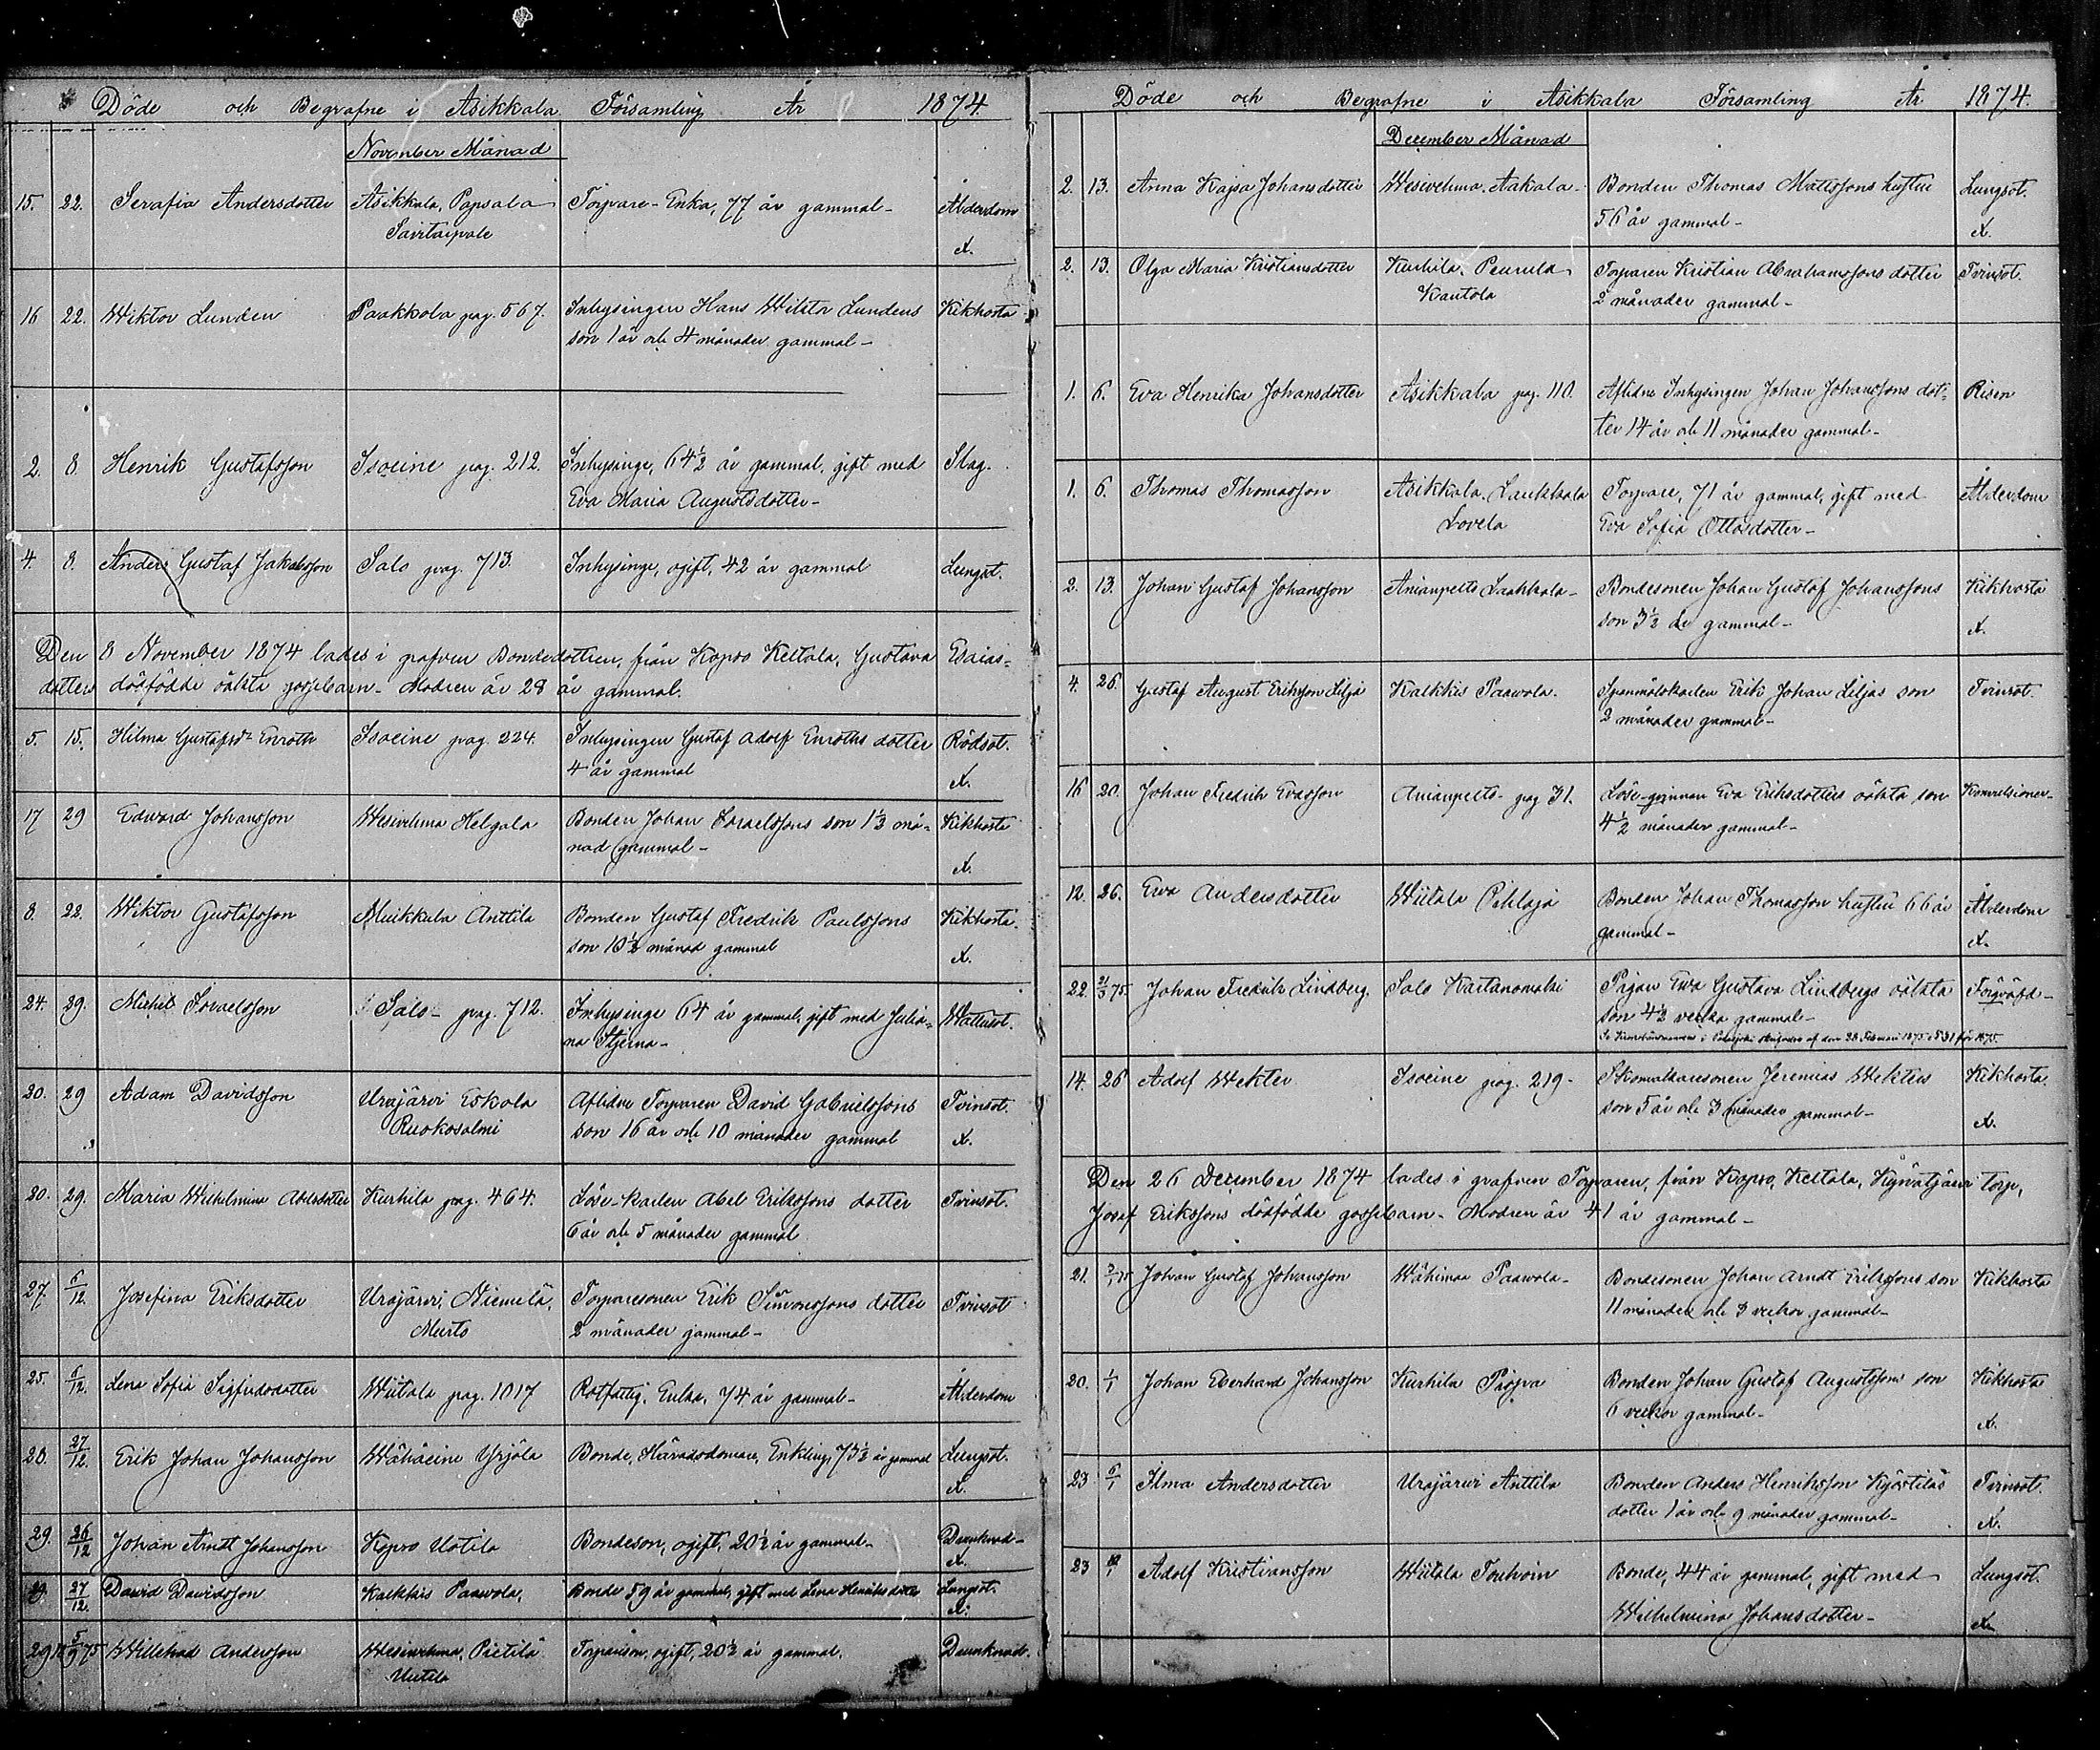 Döde och Begrafne i Asikkala Församling År 1874.
November Månad
15. 22. Serafia Andersdotter Asikkala, Papsala Torpare-Enka, 77 år gammal- Ålderdom
Savitaipale X.
16 22. Wiktor Lunden Paakkola pag. 567. Inhysingen Hans Wiktor Lundens Kikhosta
son 1 år och 4 månader gammal-
2. 8 Henrik Gustafsson Isoeine pag. 212. Inhysinge, 64½ år gammal, gift med Slag.
Eva Maria Augustsdotter-
4. 8. Anders Gustaf Jakobsson Salo pag. 713. Inhysinge, ogift, 42 år gammal Lungsot.
Den 8 November 1874 lades i grafven Bondedottren, från Kopso Keltala, Gustava Esaias-
dotters dödfödde oäkta gossebarn- Modren är 28 år gammal.
5. 15. Hilma Gustafsdr Enroth Isoeine pag. 224. Inhysingen Gustaf Adolf Enroths dotter Rödsot.
4 år gammal X.
17 29 Edward Johansson Wesivehma Helgala Bonden Johan Israelssons son 1½ må- Kikhosta
nad gammal- X.
8. 22. Wiktor Gustafsson Muikkula Anttila Bonden Gustaf Fredrik Paulssons Kikhosta.
son 10½ månad gammal X.
24. 29. Michel Israelsson Salo- pag. 712. Inhysinge 64 år gammal, gift med Julia- Wattusot.
na Stjerna-
20. 29 Adam Davidsson Urajärvi Eskola Aflidne Torparen David Gabrielssons Tvinsot.
Ruokosalmi son 16 år och 10 månader gammal X.
20. 29. Maria Wilhelmina Abelsdotter Kurhila pag. 464. Löse-karlen Abel Erikssons dotter Tvinsot.
6 år och 5 månader gammal
27. 6/12 Josefina Eriksdotter Urajärvi, Niemelä, Torparesonen Erik Simonssons dotter Tvinsot
Murto 2 månader gammal-
25. 6/12. Lena Sofia Sigfridsdotter Wiitala pag. 1017 Rotfattig, Enka, 74 år gammal- Ålderdom
20. 27/12. Erik Johan Johansson Wähäeine Yrjölä Bonde, Häradsdomare, Enkling, 73½ år gammal Lungsot.
X.
29. 26/12 Johan Arndt Johansson Kopso Uotila Bondeson, ogift, 20½ år gammal- Drunknad-
X.
29. 27/12. David Davidsson Kalkkis Paawola, Bonde 59 år gammal, gift med Lena Henriksdotter Lungsot.
X.
5/9 75 Willehad Andersson Wesivehma, Pietilä Torpareson, ogift, 20½ år gammal. Drunknad.
Uutela
Döde och Begrafne i Asikkala Församling År 1874.
December Månad
2. 13. Anna Kajsa Johansdotter Wesivehma Aakala- Bonden Thomas Mattssons hustru Lungsot.
56 år gammal- X.
2. 13. Olga Maria Kristiansdotter Kurhila. Peurula Torparen Kristian Abrahamssons dotter Tvinsot.
Kantola 2 månader gammal-
1. 6. Eva Henrika Johansdotter Asikkala pag. 110. Aflidne Inhysingen Johan Johanssons dot- Risen
ter 14 år och 11 månader gammal-
1. 6. Thomas Thomasson Asikkala. Laukkala Torpare, 71 år gammal, gift med Ålderdom
Lovela Eva Sofia Ottosdotter-
2. 13. Johan Gustaf Johansson Anianpelto Laakkola- Bondesonen Johan Gustaf Johanssons Kikhosta
son 3½ år gammal- X.
4. 26. Gustaf August Eriksson Lilja Kalkkis Paawola. Spannmålskarlen Erik Johan Liljas son Tvinsot.
2 månader gammal-
16 20. Johan Fredrik Evasson Anianpelto- pag 31. Löse-qvinnan Eva Eriksdotters oäkta son Konvulsioner-
4½ månader gammal-
12. 26. Ewa Andersdotter Wiitala Pihlaja Bonden Johan Thomasson hustru 66 år Ålderdom
gammal- X.
22. 2/3 75. Johan Fredrik Lindberg. Salo Kartanomäki Pigan Ewa Gustava Lindbergs oäkta Förqväfd-
son 4½ vecka gammal-
14. 26 Adolf Wekter Isoeine pag. 219- Skomakaresonen Jeremias Wekters Kikhosta.
son 5 år och 3 månader gammal- X.
Den 26 December 1874 lades i grafven Torparen, från Kopso, Keltala, torp,
Josef Erikssons dödfödde gossebarn- Modren är 41 år gammal-
21. Johan Gustaf Johansson Wähimaa Paawola- Bondesonen Johan Arndt Erikssons son Kikhosta
11 månader och 3 veckor gammal-
20. 1/1 Johan Eberhard Johansson Kurhila Piojva Bonden Johan Gustaf Augustssons son Kikhosta
6 veckor gammal- X.
23 6/1 Ilma Andersdotter Urajärvi Anttila Bonden Anders Henriksson Kyöstiläs Tvinsot.
dotter 1 år och 9 månader gammal- X.
23 Adolf Kristiansson Wiitala Bonde, 44 år gammal, gift med Lungsot.
Wilhelmina Johansdotter- X.